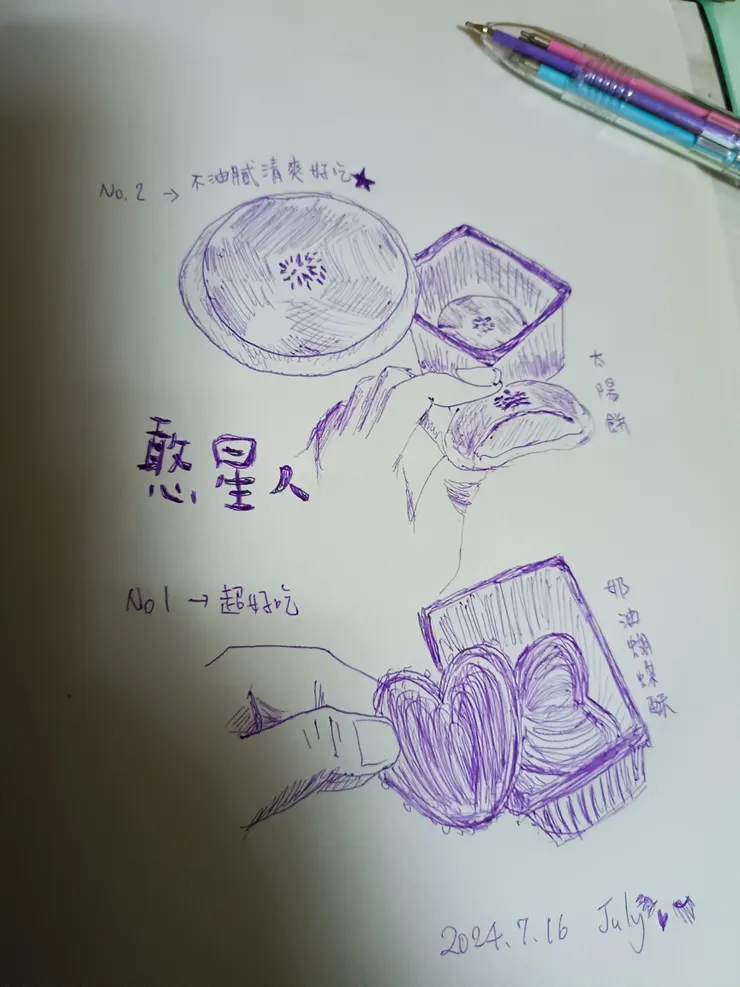 No.2 → 不油膩清爽好吃★
太陽餅
憨星人
No1 → 超好吃
奶油蝴蝶酥
2024.7.16 July